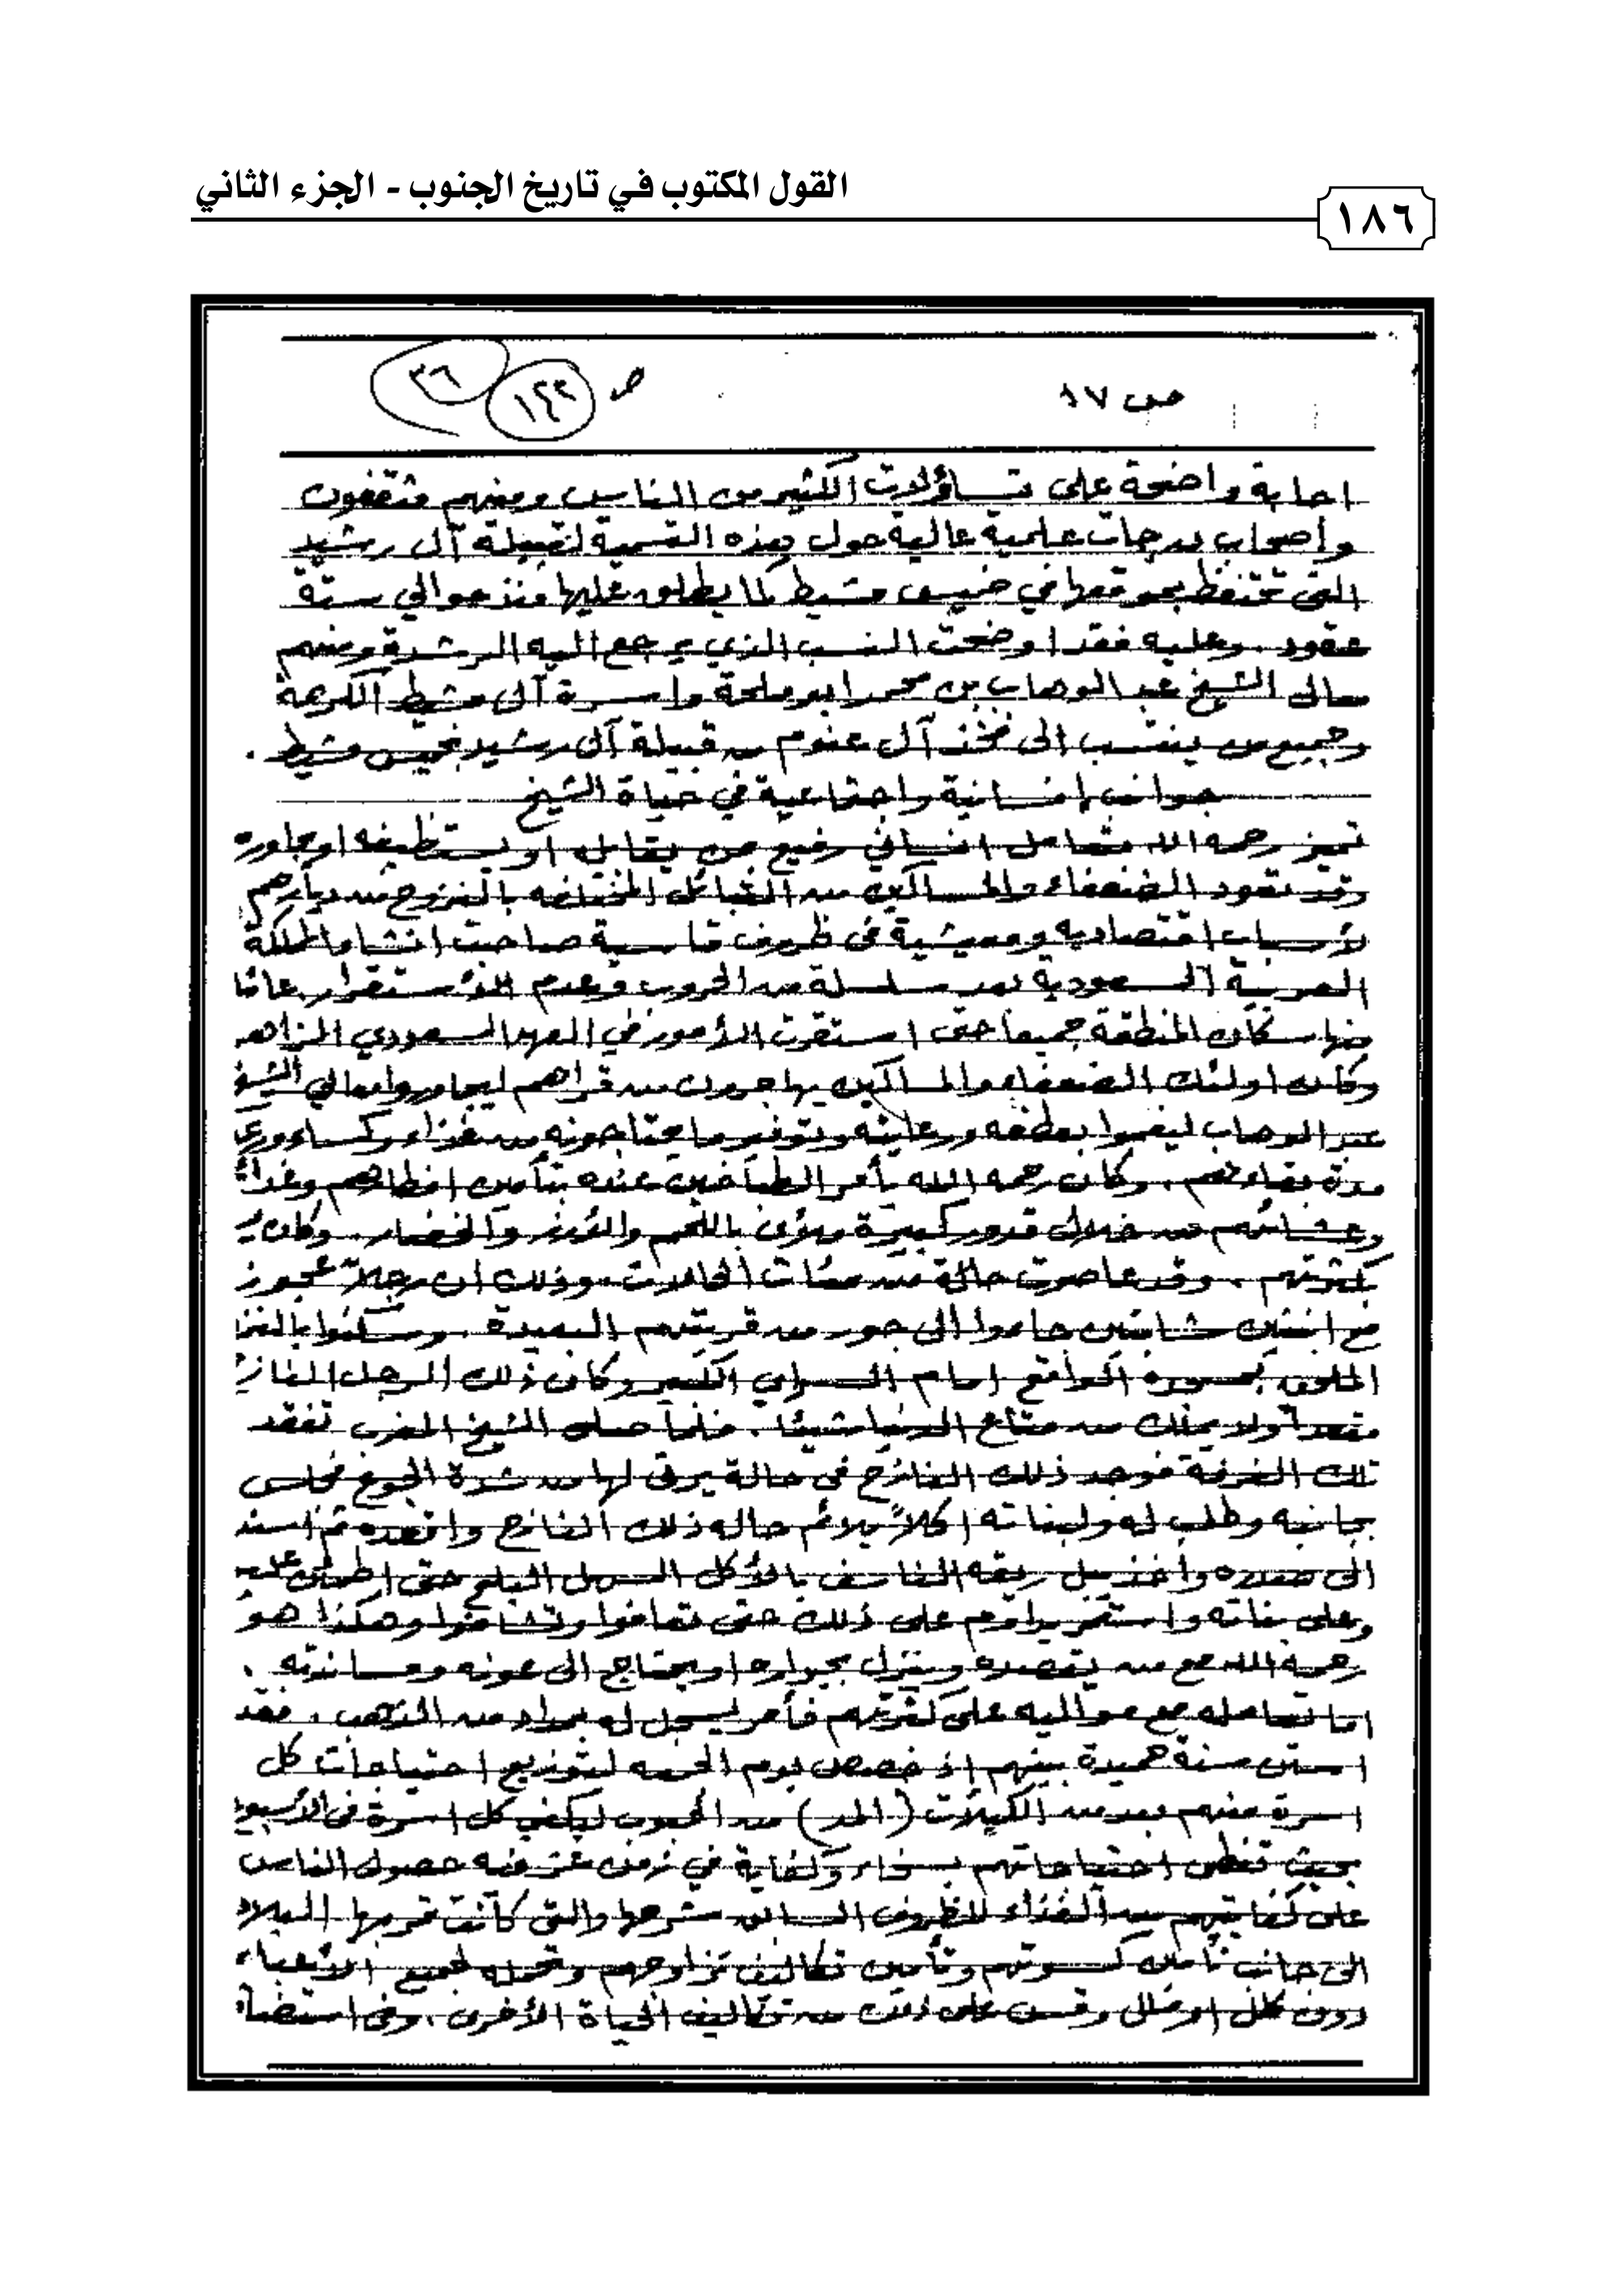 القول المكتوب في تاريخ الجنوب - الجزء الثاني
١٨٦
ص ٨٧
ص ١٤٢
٣٦
اجابة واضحة على تساؤلات الكثير من الناس ومنهم مثقفون
وأصحاب درجات علمية عالية حول هذه التسمية لقبيلة آل رشيد
التي تحتفظ بموقعها في خميس مشيط كما يطلق عليها منذ حوالي ستة
عقود. وعليه فقد اوضحت النسب الذي يرجع اليه الرشدة ومنهم
معالى الشيخ عبد الوهاب بن محمد ابو ملحة واسرة آل مشيط الكريمة
وجميع من ينتسب الى فخذ آل غنوم من قبيلة آل رشيد بخميس مشيط.
جوانب إنسانية واجتماعية في حياة الشيخ
تميز رحمه الله بتعامل انساني رفيع من يقابله او يستظيفه او جاوره
وقد تعود الضعفاء والمساكين من القبائل المختلفه بالنزوح من ديارهم
لأسباب اقتصاديه ومعيشية في ظروف قاسية صاحبت انشاء المملكة
العربية السعودية بعد سلسلة من الحروب وعدم الأستقرار عانا
منها سكان المنطقة جميعاً حتى استقرت الأمور في العهد السعودي الزاهر
وكان اولئك الضعفاء والمساكين يهاجرون من قراهم ليجاوروا معالي الشيخ
عبد الوهاب لينعموا بعطفه ورعايته وبتوفير ما يحتاجونه من غذاء وكساء
مدة بقاءهم. وكان رحمه الله يأمر الطباخين عنده بتأمين افطارهم وغداء
وعشائهم من خلال قدور كبيرة ملؤى باللحم والأرز والخضار. وكان
بكثرتهم. وقد عاصرت حالة من مئات الحالات. وذلك ان رجلاً عجوز
مع ابنتين شابتين جاءوا الى جور من قريتهم البعيدة. وسكنوا
الملحق بسوره الواقع امام السراي الكبير وكان ذلك الرجل
مقعداً ولا يملك من متاع الدنيا شيئا. فلما صلى الشيخ المغرب تفقد
تلك الغرفة فوجد ذلك النازح في حالة يرثى لها من شدة الجوع فجلس
بجانبه وطلب له ولبناته اكلاً يلائم حاله ذلك النازح واقعده ثم اسند
الى صدره واخذ يبل ريقه الناشف بالأكل السهل البلع حتى اطمئن عليه
وعلى بناته واستمر يداوم على ذلك حتى تعافوا وتشافوا وهكذا هو
رحمه الله مع من يقصده وينزل بجواره او يحتاج الى عونه ومساندته.
اما تعامله مع مواليه على كثرتهم فأمر ليسجل له بمداد من الذهب. فقد
استن سنة حميدة بينهم إذ خصص يوم الجمعه لتوزيع احتياجات كل
اسرة منهم بعدد من الكيلات (المد) من الحبوب ليكفي كل اسرة في الأسبوع
بحيث تغطى احتياجاتهم بسخاء وكفاية في زمن عز فيه حصول الناس
على كفايتهم من الغذاء للظروف السابق شرحها والتى كانت تمر بها البلاد
الى جانب تأمين كسوتهم وتأمين تكاليف تزاوجهم وتحمله لجميع الأعباء
دون كلل او ملل وقس على ذلك من تكاليف الحياة الأخرى. وفى